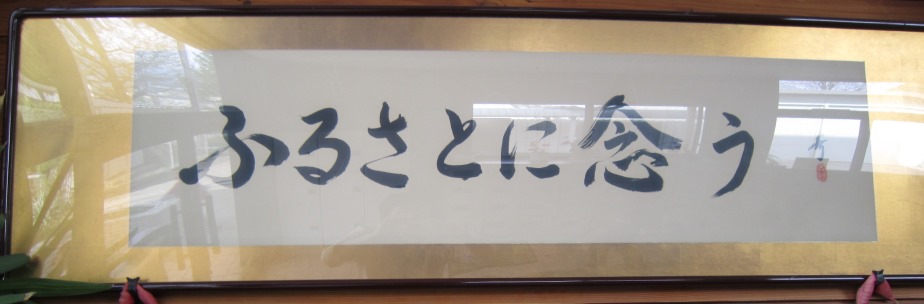 ふるさとに念う